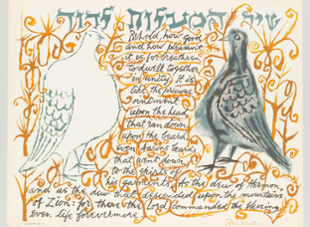 שיר המעלות לדוד
Behold, how good
and how pleasant
it is for breathren
to dwell together
in unity. It is
like the precious
ointment
upon the head,
that ran down
upon the beard,
even Aarons beard:
that went down
to the skirts of
his garments; As the dew of Hermon,
and as the dew that descended upon the mountains
of Zion: for there the Lord commanded the blessing,
even life forevermore.
Ben Shahn